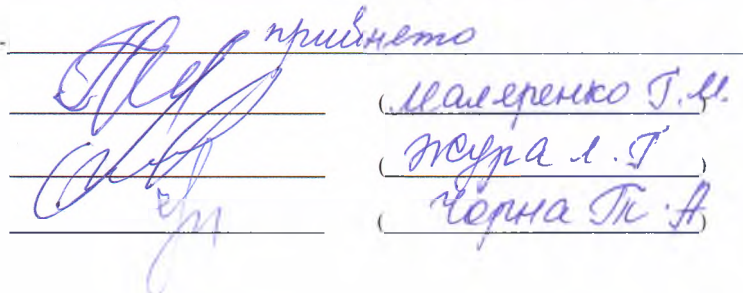 прийнято
(Маляренко Г.М.)
(Жура Л.Г)
(Чорна Т.А)